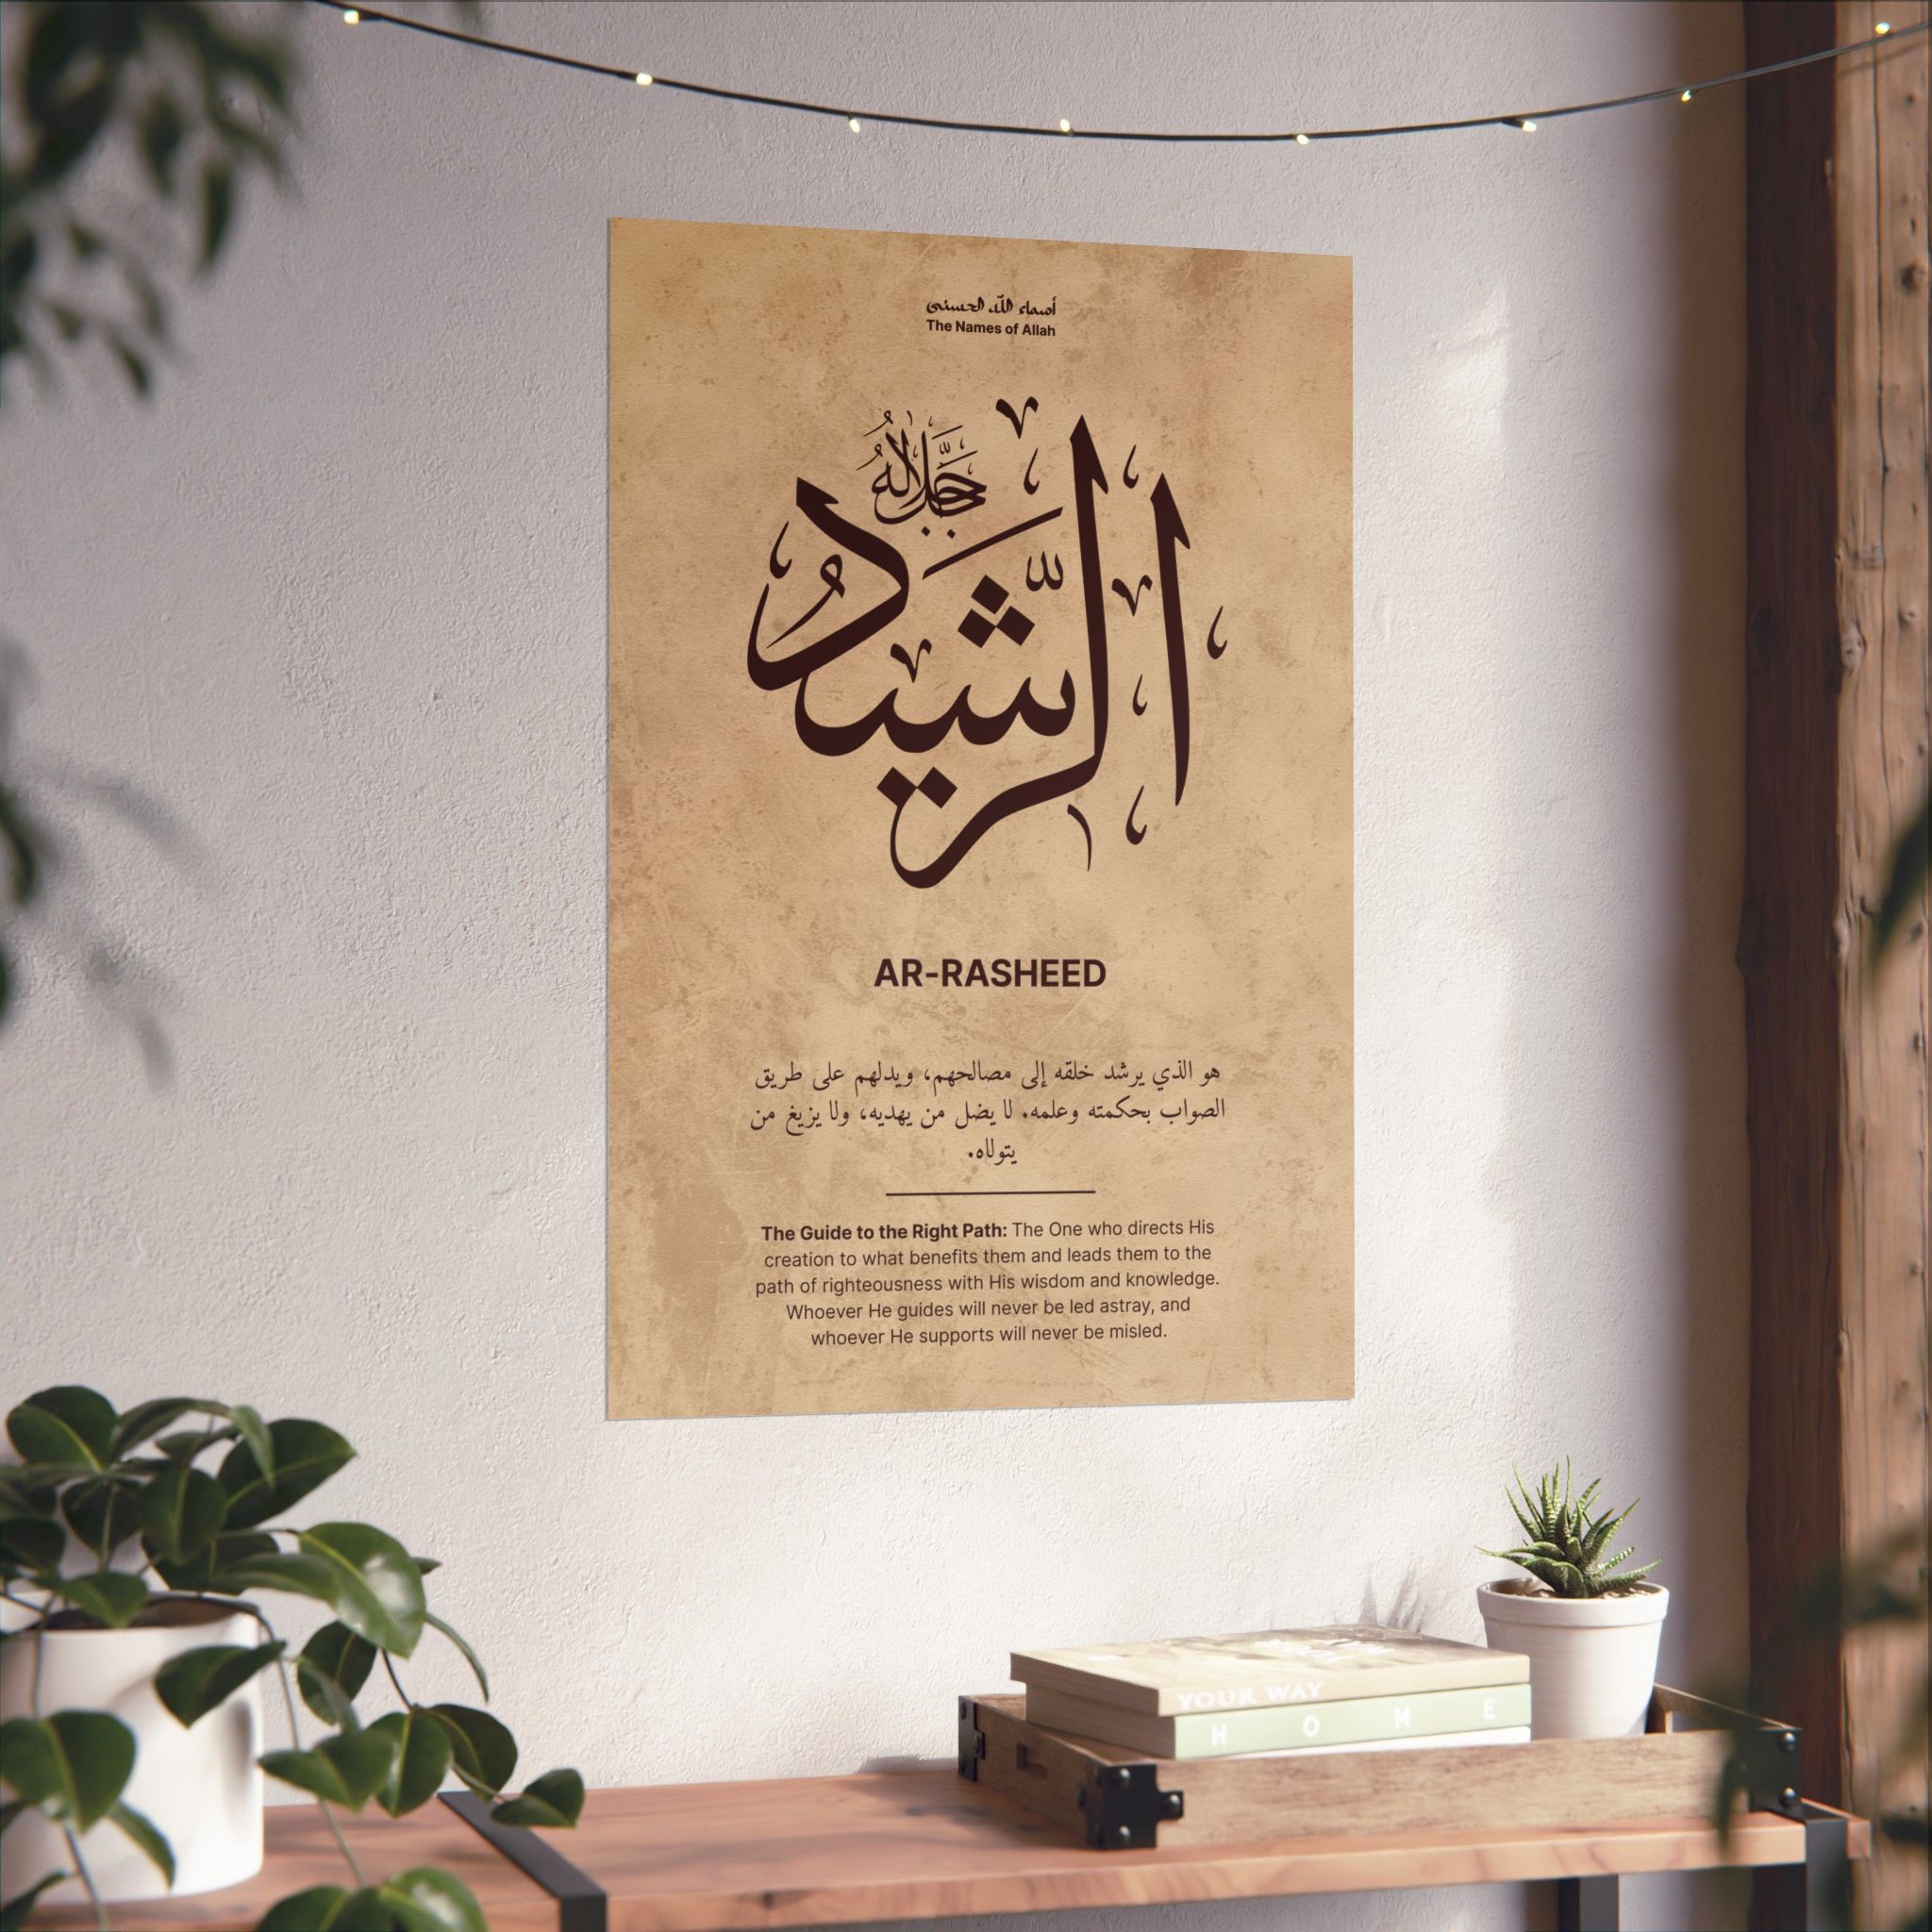 أسماء الله الحسنى
The Names of Allah
جَلَّ جَلَالُهُ
الرَّشِيدُ
AR-RASHEED
هو الذي يرشد خلقه إلى مصالحهم، ويدلهم على طريق
الصواب بحكمته وعلمه. لا يضل من يهديه، ولا يزيغ من
يتولاه.
The Guide to the Right Path: The One who directs His
creation to what benefits them and leads them to the
path of righteousness with His wisdom and knowledge.
Whoever He guides will never be led astray, and
whoever He supports will never be misled.
YOUR WAY
HOME